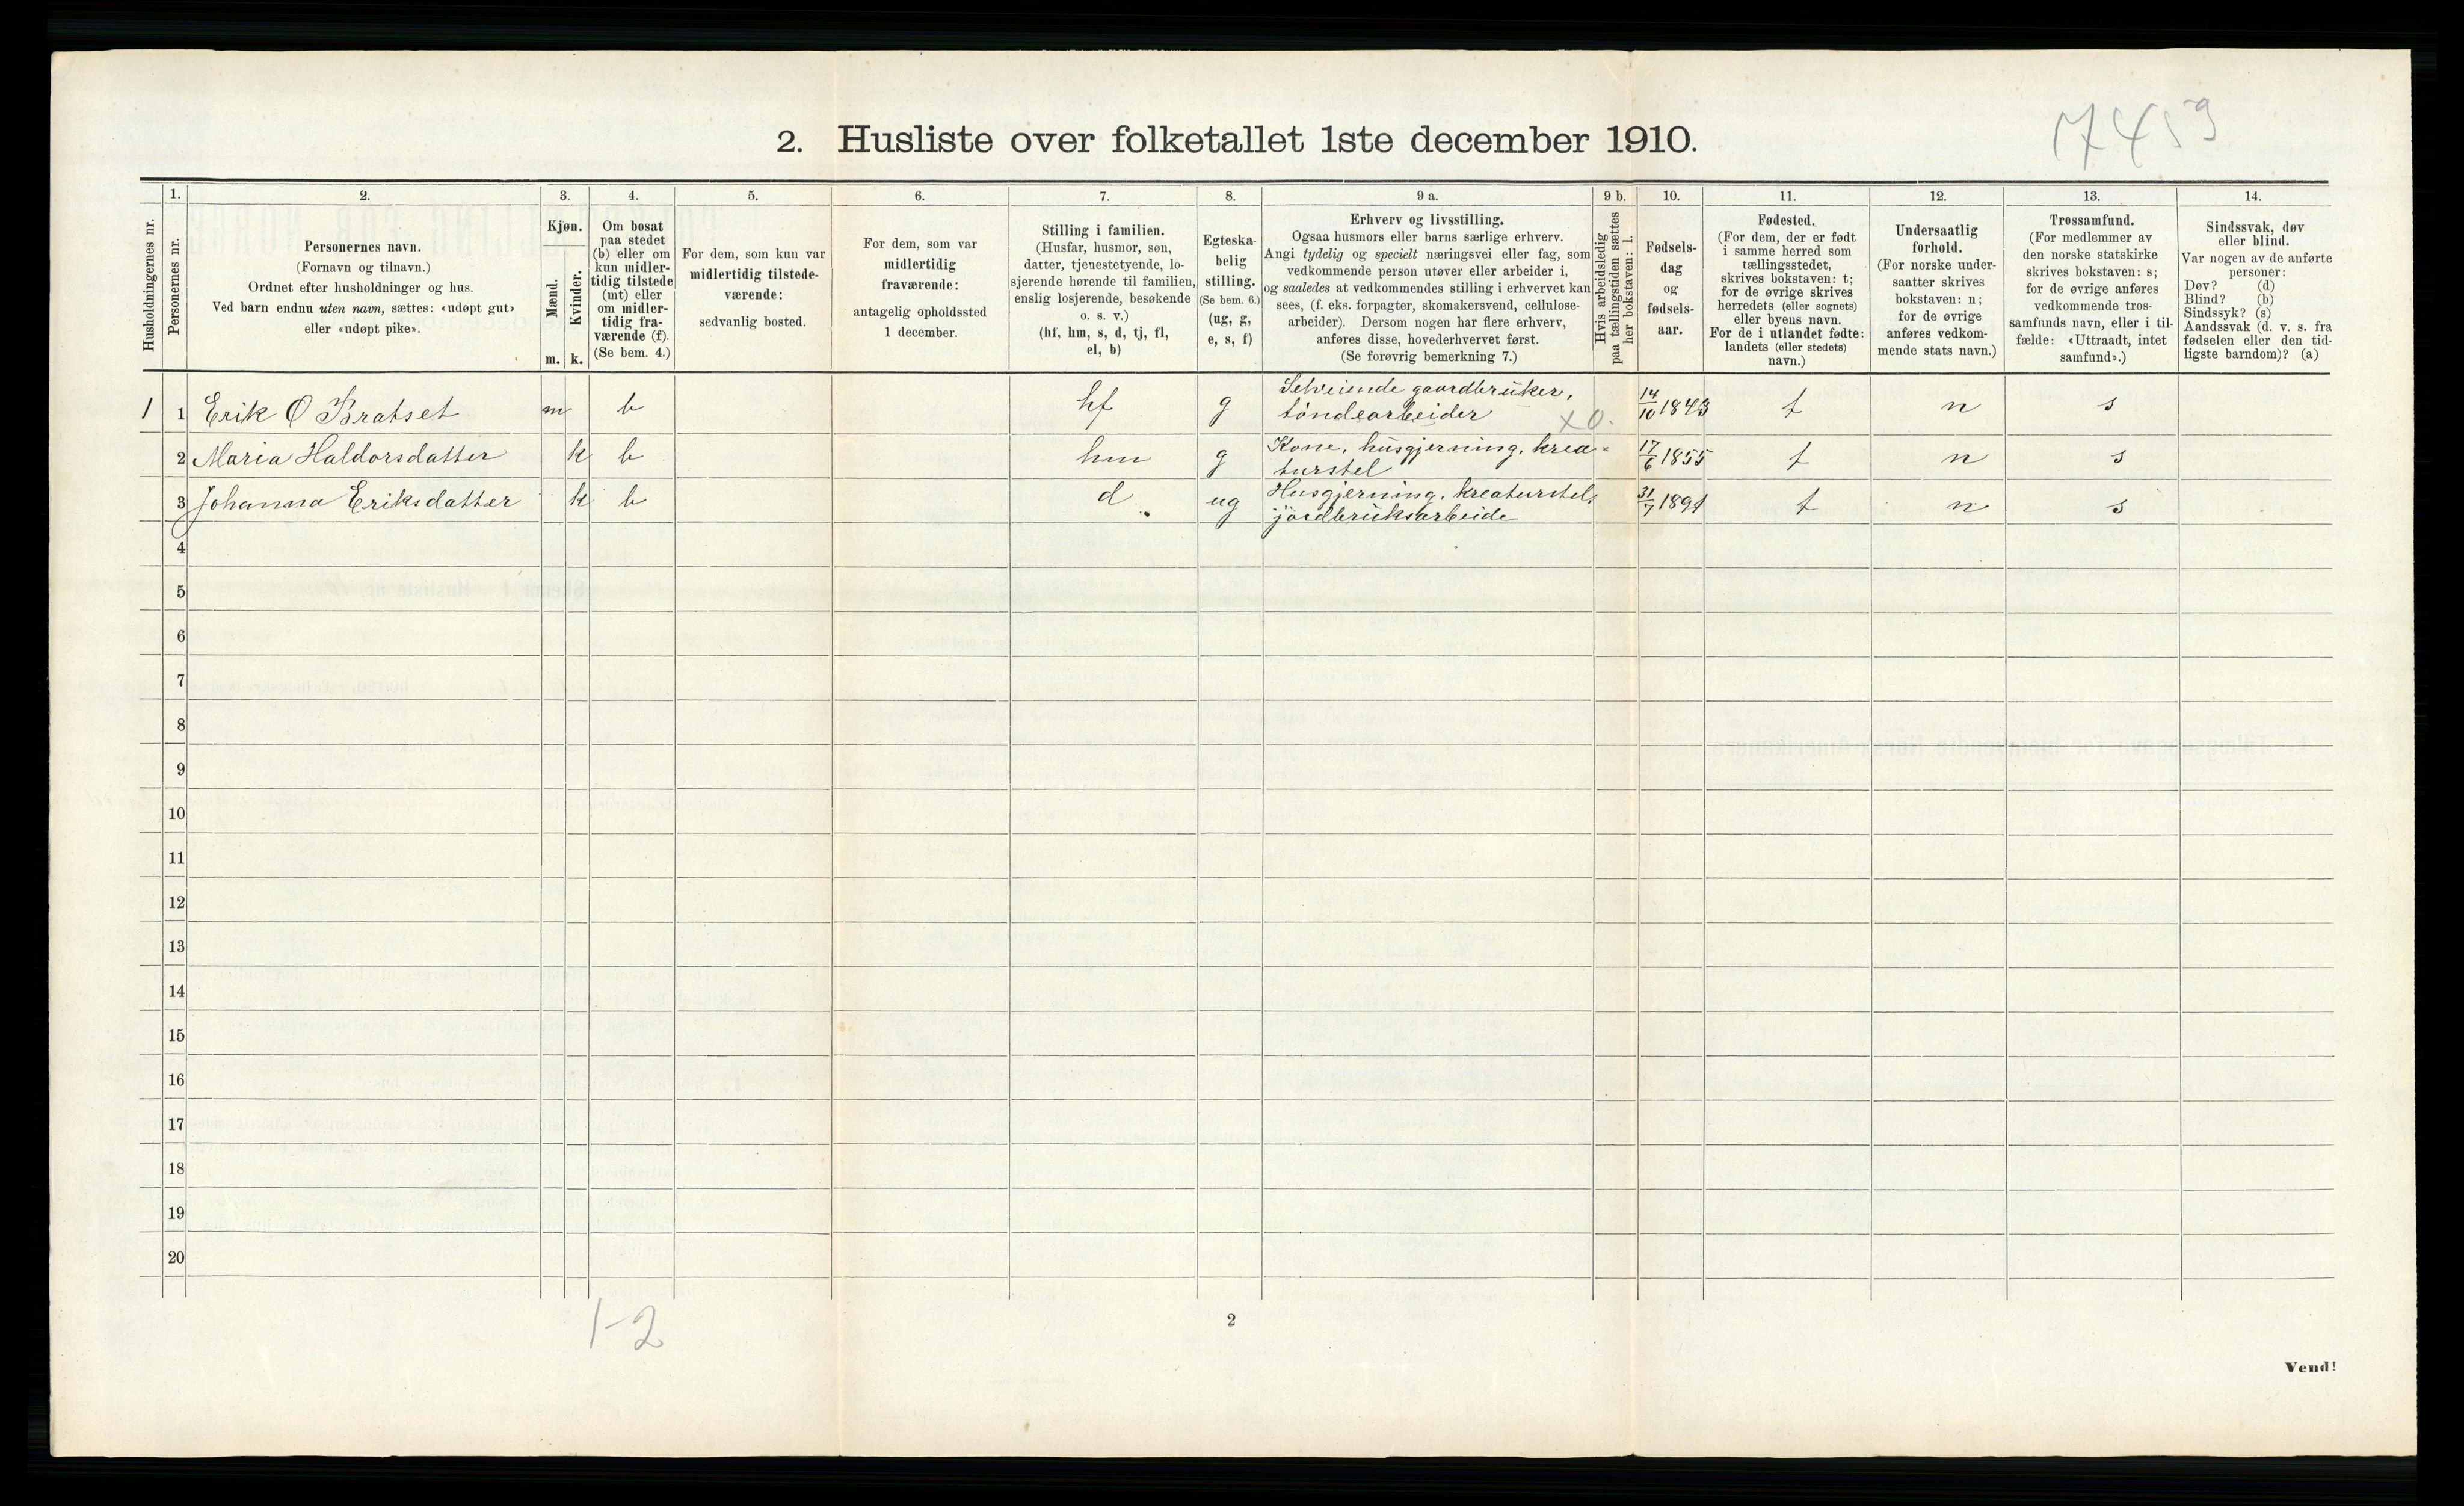 7453
2. Husliste over folketallet 1ste december 1910.
Husholdningernes nr.
1.
Personernes nr.
2.
Personernes navn.
(Fornavn og tilnavn.)
Ordnet efter husholdninger og hus.
Ved barn endnu uten navn, sættes: «udøpt gut»
eller «udøpt pike».
3.
Kjøn.
Mænd.
Kvinder.
m. k.
4.
Om bosat
paa stedet
(b) eller om
kun midler-
tidig tilstede
(mt) eller
om midler-
tidig fra-
værende (f).
(Se bem. 4.)
5.
For dem, som kun var
midlertidig tilstede-
værende:
sedvanlig bosted.
6.
For dem, som var
midlertidig
fraværende:
antagelig opholdssted
1 december.
7.
Stilling i familien.
(Husfar, husmor, søn,
datter, tjenestetyende, lo-
sjerende hørende til familien,
enslig losjerende, besøkende
o. s. v.)
(hf, hm, s, d, tj, fl,
el, b)
8.
Egteska-
belig
stilling.
(Se bem. 6.)
(ug, g,
e, s, f)
9 a.
Erhverv og livsstilling.
Ogsaa husmors eller barns særlige erhverv.
Angi tydelig og specielt næringsvei eller fag, som
vedkommende person utøver eller arbeider i,
og saaledes at vedkommendes stilling i erhvervet kan
sees, (f. eks. forpagter, skomakersvend, cellulose-
arbeider). Dersom nogen har flere erhverv,
anføres disse, hovederhvervet først.
(Se forøvrig bemerkning 7.)
9 b.
Hvis arbeidsledig
paa tællingstiden sættes
her bokstaven: l.
10.
Fødsels-
dag
og
fødsels-
aar.
11.
Fødested.
(For dem, der er født
i samme herred som
tællingsstedet,
skrives bokstaven: t;
for de øvrige skrives
herredets (eller sognets)
eller byens navn.
For de i utlandet fødte:
landets (eller stedets)
navn.)
12.
Undersaatlig
forhold.
(For norske under-
saatter skrives
bokstaven: n;
for de øvrige
anføres vedkom-
mende stats navn.)
13.
Trossamfund.
(For medlemmer av
den norske statskirke
skrives bokstaven: s;
for de øvrige anføres
vedkommende tros-
samfunds navn, eller i til-
fælde: «Uttraadt, intet
samfund».)
14.
Sindssvak, døv
eller blind.
Var nogen av de anførte
personer:
Døv? (d)
Blind? (b)
Sindssyk? (s)
Aandssvak (d. v. s. fra
fødselen eller den tid-
ligste barndom)? (a)
1 1 Erik O Bratset m b hf g Selveiende gaardbruker, tøndearbeider x0. 14/10 1843 t n s
2 Maria Haldorsdatter k b hm g Kone, husgjerning, krea= turstel 17/6 1855 t n s
3 Johanna Eriksdatter k b d ug Husgjerning, kreaturstel, jordbruksarbeide 31/7 1891 t n s
4
5
6
7
8
9
10
11
12
13
14
15
16
17
18
19
20
1-2
2
Vend!